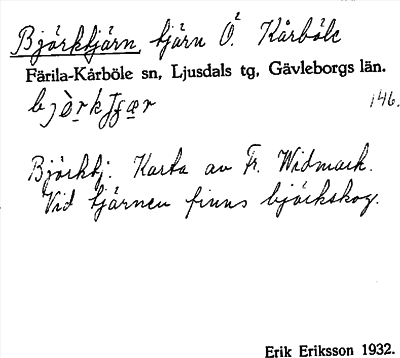 Björktjärn, tjärn Ö. Kårböle
Färila-Kårböle sn, Ljusdals tg, Gävleborgs län.
146.
Björktj: Karta av Fr. Widmark.
Vid tjärnen finns björkskog.
Erik Eriksson 1932.